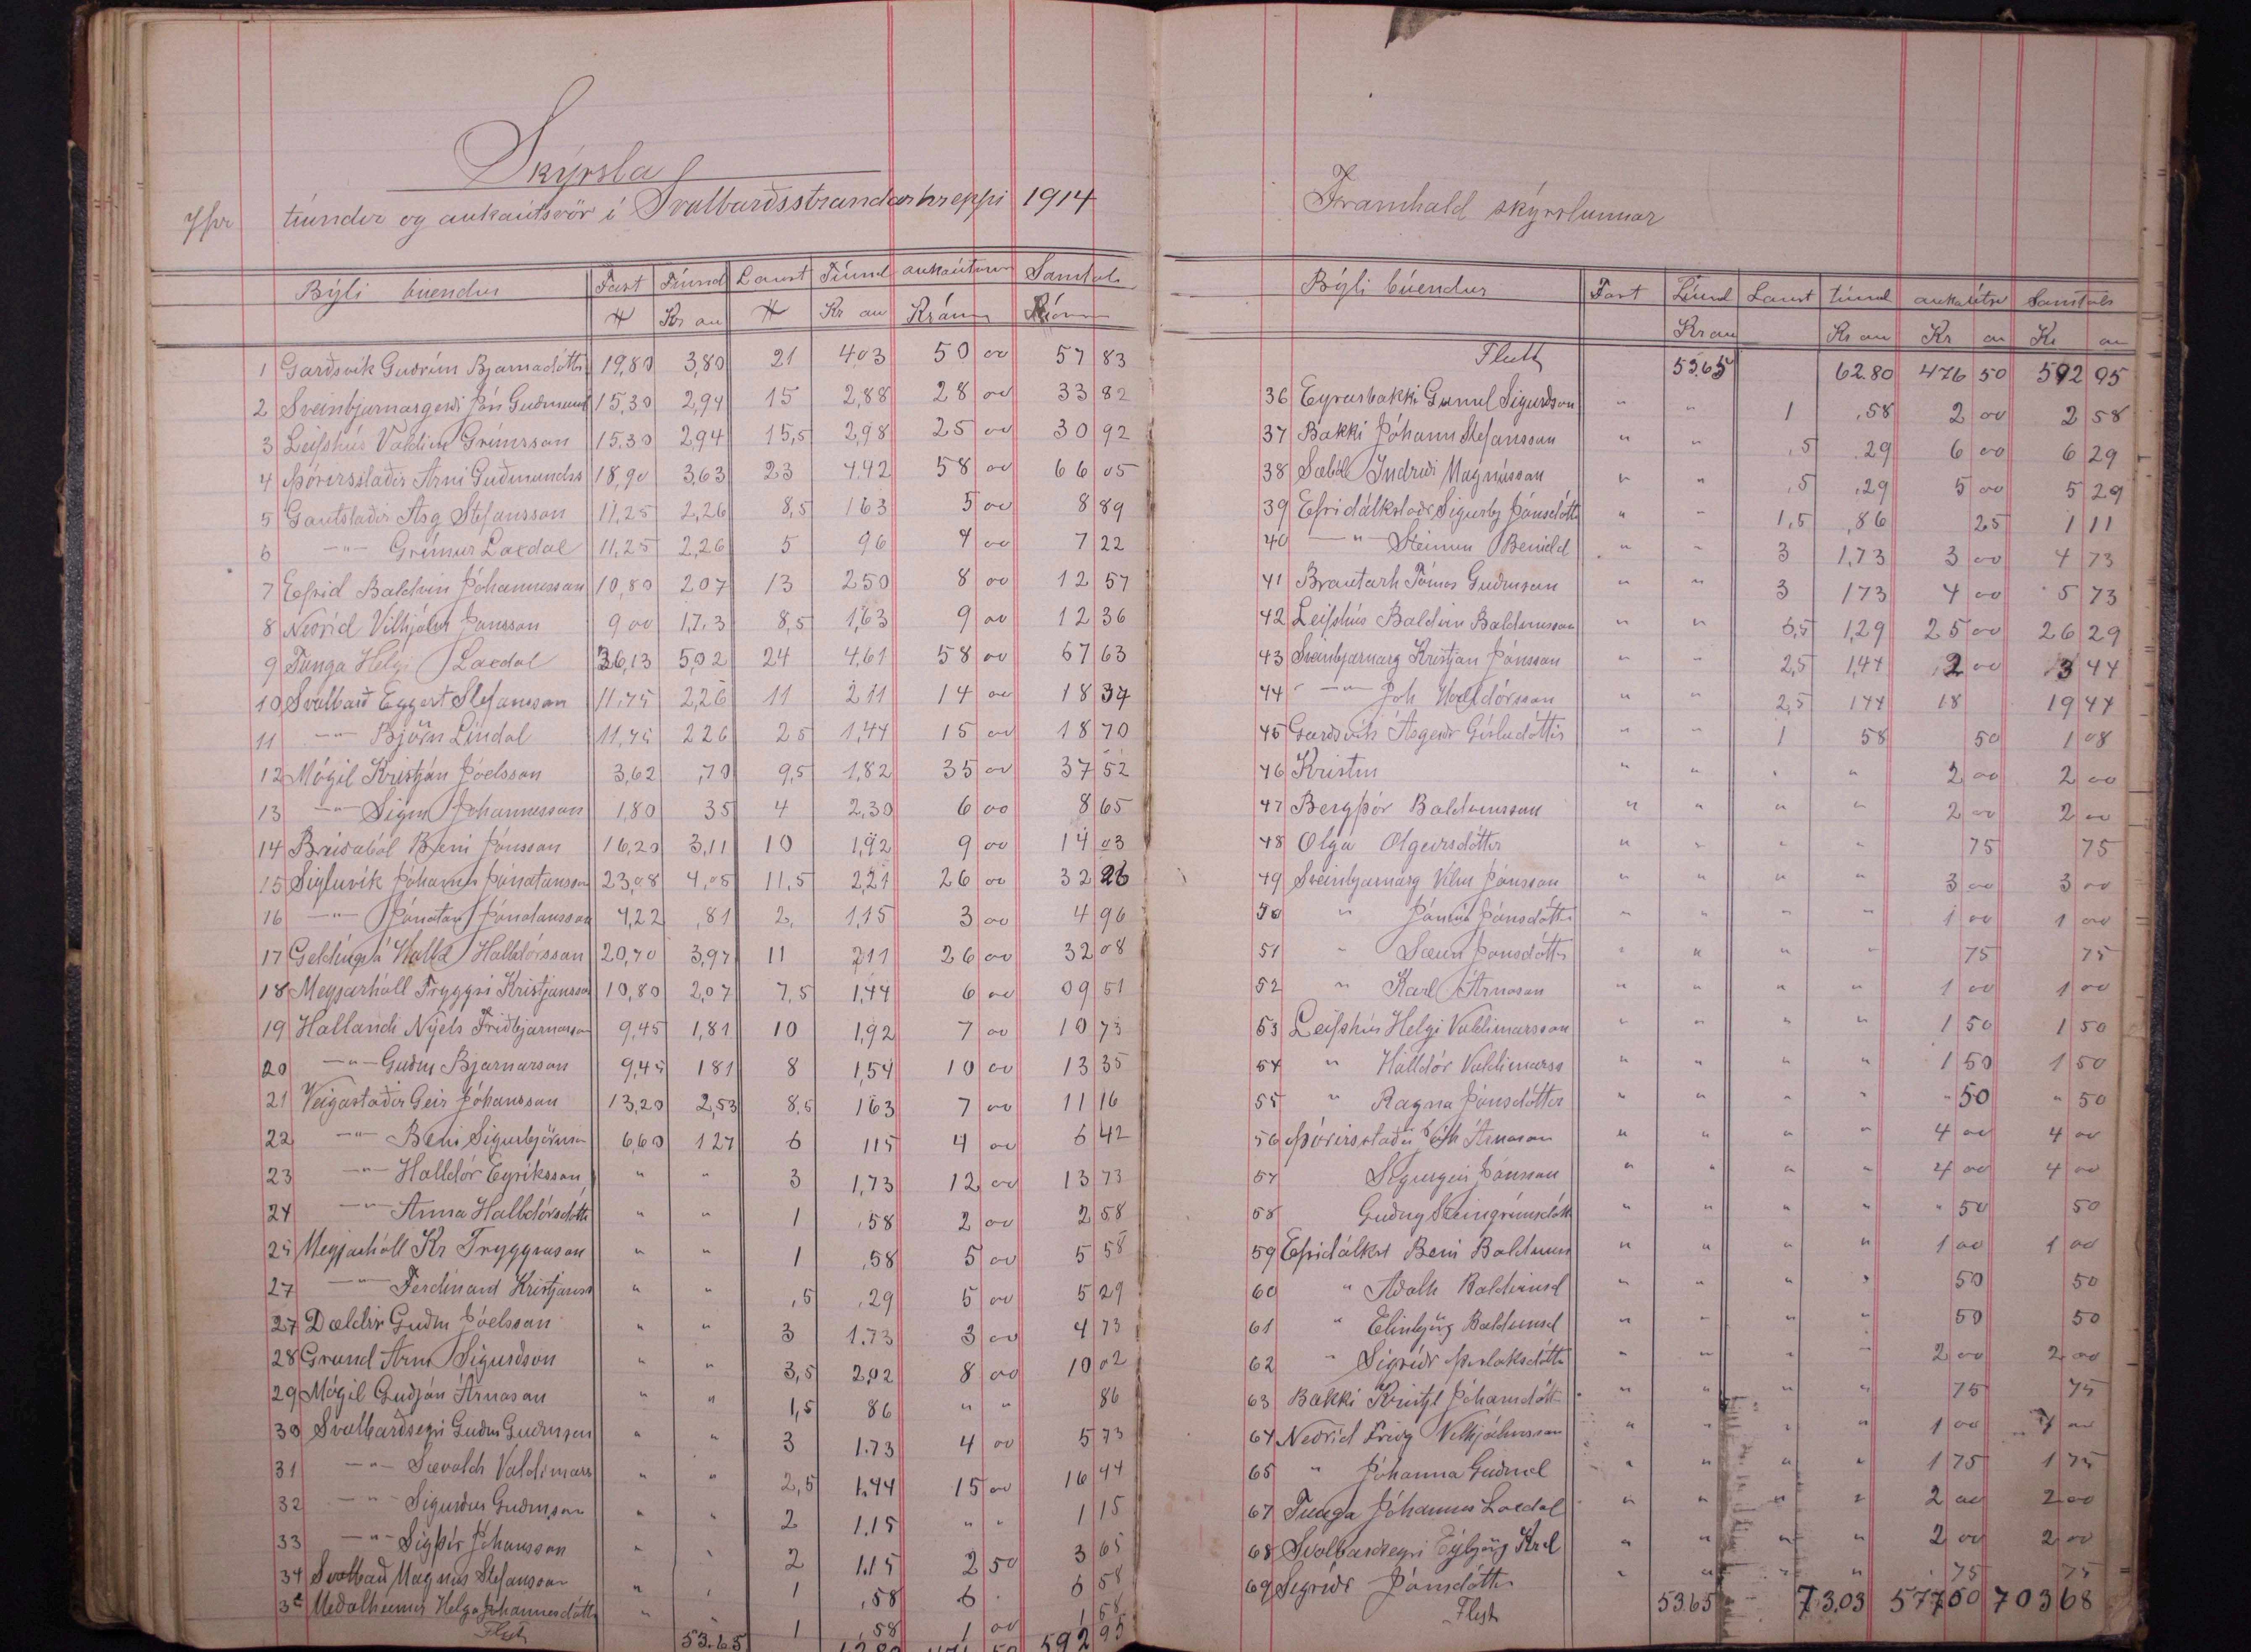 Skýrsla
yfir tíundir og aukaútsvör í Svalbarðsstrandarhreppi 1914
Býli búendur Fast Tíund Laust Tíund aukaútsvar Samtals
Kr au Kr au Krónur Krónur
1 Garðsvík Guðrún Bjarnadóttir 19,80 3,80 21 4,03 50 00 57 83
2 Sveinbjarnargerði Jón Guðmunds 15,30 2,94 15 2,88 28 00 33 82
3 Leifshús Valdim Grímsson 15,30 2,94 15,5 2,98 25 00 30 92
4 Þórisstaðir Árni Guðmundss 18,90 3,63 23 4,42 58 00 66 05
5 Gautstaðir Ásg Stefansson 11,25 2,26 8,5 163 5 00 8 89
6 -"- Grímur Laxdal 11,25 2,26 5 96 4 00 7 22
7 Efrid Baldvin Jóhannesson 10,80 207 13 250 8 00 12 57
8 Neðrid Vilhjálm Jónsson 9 00 1,73 8,5 1,63 9 00 12 36
9 Tunga Helgi Laxdal 26,13 5,02 24 4,61 58 00 67 63
10 Svalbarð Eggert Stefansson 11,75 2,26 11 2 11 14 00 18 37
11 -"- Björn Líndal 11,75 226 25 1,44 15 00 18 70
12 Mógil Kristján Jóelsson 3,62 ,70 9,5 1,82 35 00 37 52
13 -"- Sigm Johannesson 1,80 35 4 2,30 6 00 8 65
14 Breiðaból Beni Jónsson 16,20 3,11 10 1,92 9 00 14 03
15 Sigluvík Jóhann Jónatansson 23,08 4,05 11,5 2,21 26 00 32 26
16 -"- Jónatan Jónatansson 4,22 ,81 2, 1,15 3 00 4 96
17 Geldingsá Halld Halldórsson 20,70 3,97 11 211 26 00 32 08
18 Meyjarhóll Tryggvi Kristjansson 10,80 2,07 7,5 1,44 6 00 09 51
19 Hallandi Níels Friðbjarnarson 9,45 1,81 10 1,92 7 00 10 73
20 -"- Guðm Bjarnarson 9,45 181 8 1,54 10 00 13 35
21 Veigastaðir Geir Jóhansson 13,20 2,53 8,5 163 7 00 11 16
22 -"- Beni Sigurbjörnss 6,60 127 6 115 4 00 6 42
23 -"- Halldór Eyríksson " " 3 1,73 12 00 13 73
24 -"- Anna Halldórsdótti " " 1 ,58 2 00 2 58
25 Meyjarhóll Kr Tryggvason " " 1 ,58 5 00 5 58
27 -"- Ferdinant Kristjanss " " ,5 ,29 5 00 5 29
27 Dældir Guðm Jóelsson " " 3 1.73 3 00 4 73
28 Grund Árni Sigurðson " " 3,5 2,02 8 00 10 02
29 Mógil Guðján Árnason " " 1,5 86 " " 86
30 Svalbarðseyri Guðm Guðmson " " 3 1.73 4 00 5 73
31 -"- Sævaldr Valdimars " " 2,5 1.44 15 00 16 44
32 -"- Sigurður Guðmson " " 2 1.15 " " 1 15
33 -"- Sigþór Jóhansson " " 2 1.15 2 50 3 65
34 Svalbarð Magnús Stefansson " " 1 ,58 6 . 6 58
35 Meðalheimur Helga Jóhannesdótti " " 1 ,58 1 00 1 58
Flyt 53.65 592 95
Framhald skýrslunnar
Býli búendur Fast Tíund Laust tíund aukaútsv Samtals
Kr au Kr au Kr au Kr au
Flutt 53.65 62.80 476 50 592 95
36 Eyrarbakki Gunnl Sigurðson " " 1 ,58 2 00 2 58
37 Bakki Jóhann Stefansson " " ,5 .29 6 00 6 29
38 Sæból Indriði Magnússon " " ,5 ,29 5 00 5 29
39 Efridálkstaðr Sigurbj Jónsdótti " " 1,5 ,86 25 1 11
40 -"- Steinun Benidd " " 3 1,73 3 00 4 73
41 Brautarh Tómas Guðmson " " 3 173 4 00 5 73
42 Leifshús Baldvin Baldvinsson " " 6,5 1,29 25 00 26 29
43 Sveinbjarnarg Kristjan Jónsson " " 2,5 1,44 2 00 3 44
44 -"- Joh Halldórsson " " 2,5 144 18 19 44
45 Garðsvík Ásgerðr Gísladóttir " " 1 58 50 1 08
46 Kristin " " " " 2 00 2 00
47 Bergþór Baldvinsson " " " " 2 00 2 00
48 Olga Olgeirsdóttir " " " " 75 75
49 Sveinbjarnarg Vilm Jónsson " " " " 3 00 3 00
50 " Jónína Jónsdótti " " " " 1 00 1 00
51 " Sæun Jónsdótti " " " " 75 75
52 " Karl Árnason " " " " 1 00 1 00
53 Leifshús Helgi Valdimarsson " " " " 1 50 1 50
54 " Halldór Valdimarss " " " " 1 50 1 50
55 " Ragna Jónsdóttir " " " " " 50 " 50
56 Þórisstaðir Jóh Árnason " " " " 4 00 4 00
57 Sigurgeir Jónsson " " " " 4 00 4 00
58 Guðny Steingrímsdótt " " " " " 50 50
59 Efridálkst Beni Baldvins " " " " 1 00 1 00
60 " Aðalh Baldvinsd " " " " 50 50
61 " Elinbjörg Baldvinsd " " " " 50 50
62 " Sigríðr Þorláksdótti " " " " 2 00 2 00
63 Bakki Kristjl Jóhansdótt " " " " 75 75
64 Neðrid Friðg Vilhjálmsson " " " " 1 00 1 00
65 " Jóhanna Guðmd " " " " 1 75 1 75
67 Tunga Jóhannes Laxdal " " " " 2 00 2 00
68 Svalbarðseyri Eybjörg Krd " " " " 2 00 2 00
69 Sigríðr Jónsdótti " " " " 75 75
Flyt 53.65 73.03 577 50 703 68